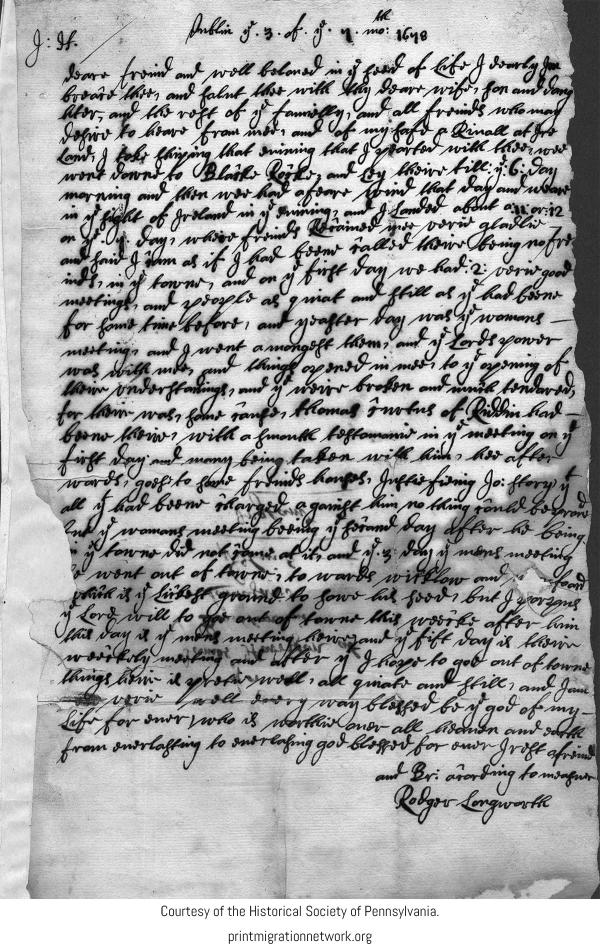 Dublin ye. 3. of. ye. 7. th mo: 1678
J: H.
deare freind and well beloued in ye seed of Life I dearly Im
breace thee, and salut thee with thy deare wife, son and dau
hter, and the rest of ye familly, and all freinds who may
desire to heare from mee, and of my safe a Riuall at Ire
Land, I take shiping that euining that I parted with thee, wee
went downe to Blacke Rocke, and Ley theire till: ye: 6: day
morning and then wee had a feare wind that day and weare
in ye sight of Ireland in ye euining, and I Landed about a 11 or: 12
on ye day, where freinds Receiued mee verie gladlie
and said I cam as if I had beene called theire being no fre
inds, in ye towne, and on ye first day we had: 2: verie good
meetings, and people as quiat and still as ye had beene
for some time before, and yeaster day was ye womans
meeting, and I went a mongest them, and ye Lords power
was with mee, and things opened in mee, to ye opening of
theire understandings, and ye weire broken and much tendered,
for theire was, some cause, thomas Curtus of Riddin had
beene theire, with a smouth testamonie in ye meeting on ye
first day and many being taken with him, hee after
wards, goes to some freinds houses, Justiefieing Jo: story yt
all yt had beene charged a gainst him no thing could be proued
but ye womans meeting beeing ye second day after he being
in ye towne did not come at it, and ye. 3 day ye mens meeting
he went out of towne, to wards wicklow and
which is ye likest ground to sowe his seed, but I porpus
ye Lord will to goe out of towne this weecke after him
this day is ye mens meeting heere, and ye fift day is theire
weeckely meeting and after yt I hope to goe out of towne
things heire is pretie well, all quiate and still, and I am
verie well euery way blessed be ye god of my
Life for euer, who is worthie ouer all heauen and earth
from euerlasting to euerlasting god blessed for euer I rest a freind
and Br: acording to measuer
Rodger Longworth
Courtesy of the Historical Society of Pennsylvania.
printmigrationnetwork.org